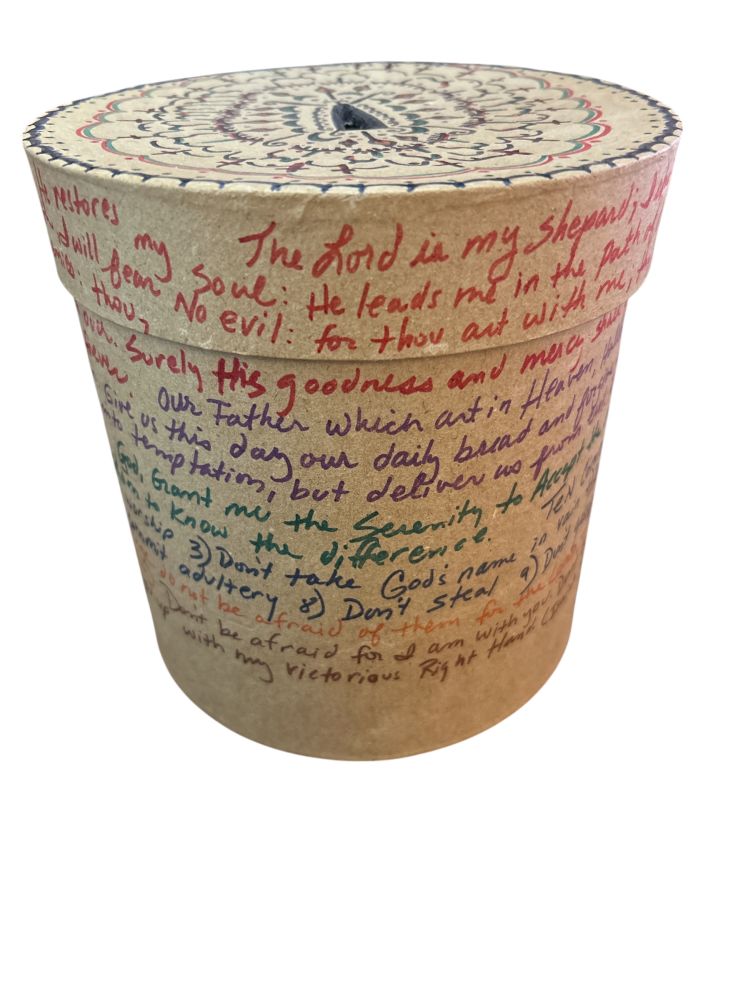 restores my soul: He leads me in the Path of
The Lord is my Shepard; I
I will fear No evil: for thou art with me, the
thou,
Surely His goodness and mercy shall
Our Father which art in Heaven,
Give us this day our daily bread and forgive
into temptation, but deliver us from
God Grant me the Serenity to Accept the
to Know the difference. Ten
worship 3) Don't take God's name in vain
commit adultery 8) Don't steal 9) Don't
do not be afraid of them for the Lord
Don't be afraid for I am with you. Don't
with my victorious Right Hand.